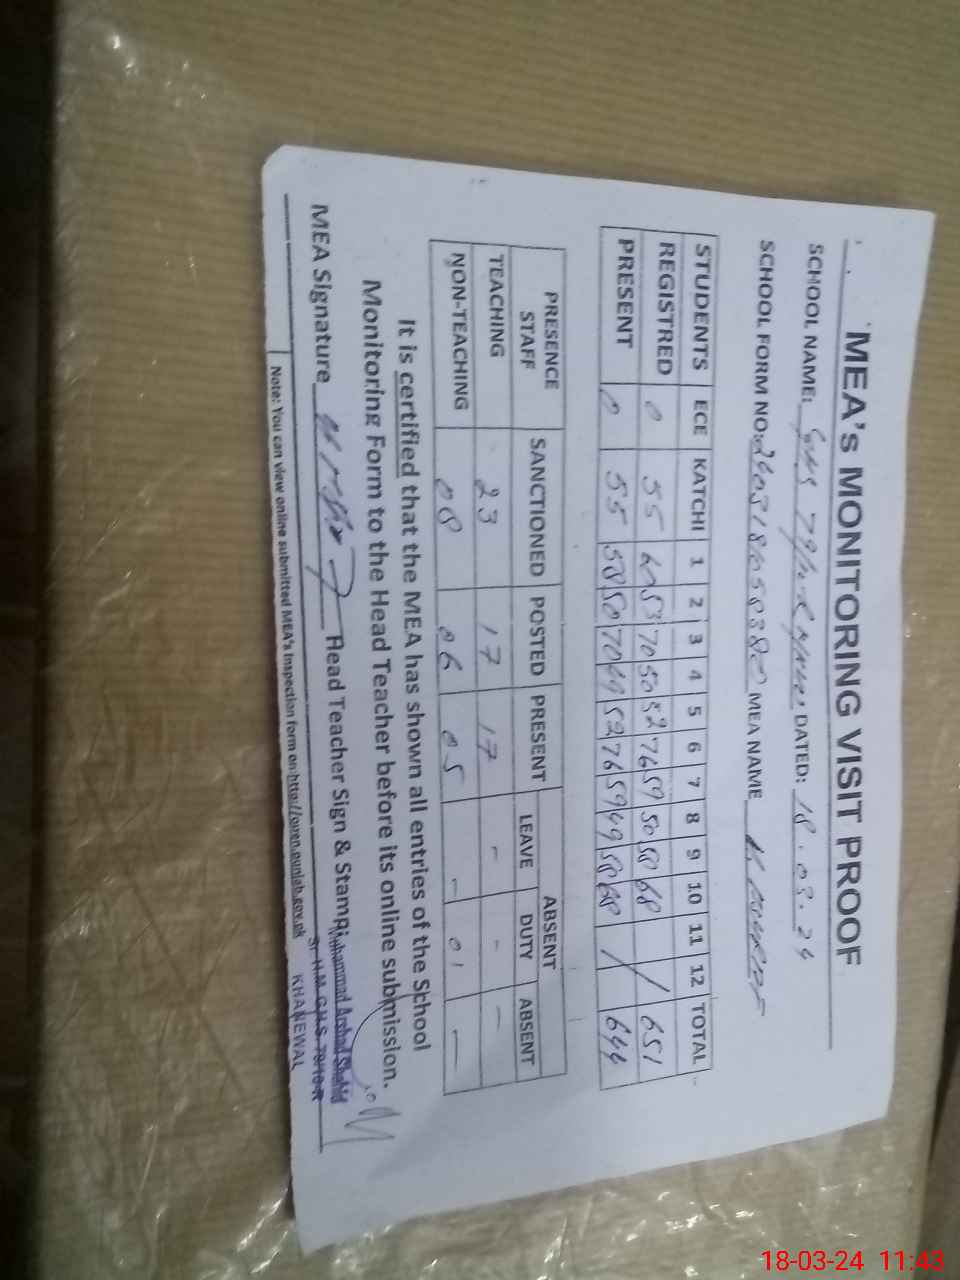 MEA's MONITORING VISIT PROOF
SCHOOL NAME: GHS 79/10-R DATED: 18.03.24
SCHOOL FORM NO: MEA NAME
STUDENTS ECE KATCHI 1 2 3 4 5 6 7 8 9 10 11 12 TOTAL
REGISTRED 0 55 60 53 70 50 52 76 59 50 58 68 / 651
PRESENT 0 55 58 50 70 49 52 76 59 49 58 68 / 644
PRESENCE STAFF SANCTIONED POSTED PRESENT ABSENT
LEAVE DUTY ABSENT
TEACHING 23 17 17 - - -
NON-TEACHING 08 06 05 - 01 -
It is certified that the MEA has shown all entries of the School
Monitoring Form to the Head Teacher before its online submission.
MEA Signature Head Teacher Sign & Stamp
Muhammad Arshad Shahid
Sr. H.M. G.H.S. 79/10-R
KHANEWAL
Note: You can view online submitted MEA's inspection form on http://open.punjab.gov.pk
18-03-24 11:43